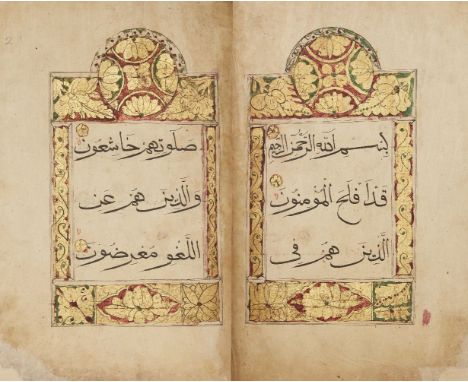 بِسْمِ اللهِ الرَّحْمٰنِ الرَّحِيْمِ
قَدْ اَفْلَحَ الْمُؤْمِنُوْنَ
الَّذِيْنَ هُمْ فِى
صَلَوتِهِمْ خَاشِعُوْنَ
وَالَّذِيْنَ هُمْ عَنِ
اللَّغْوِ مُعْرِضُوْنَ